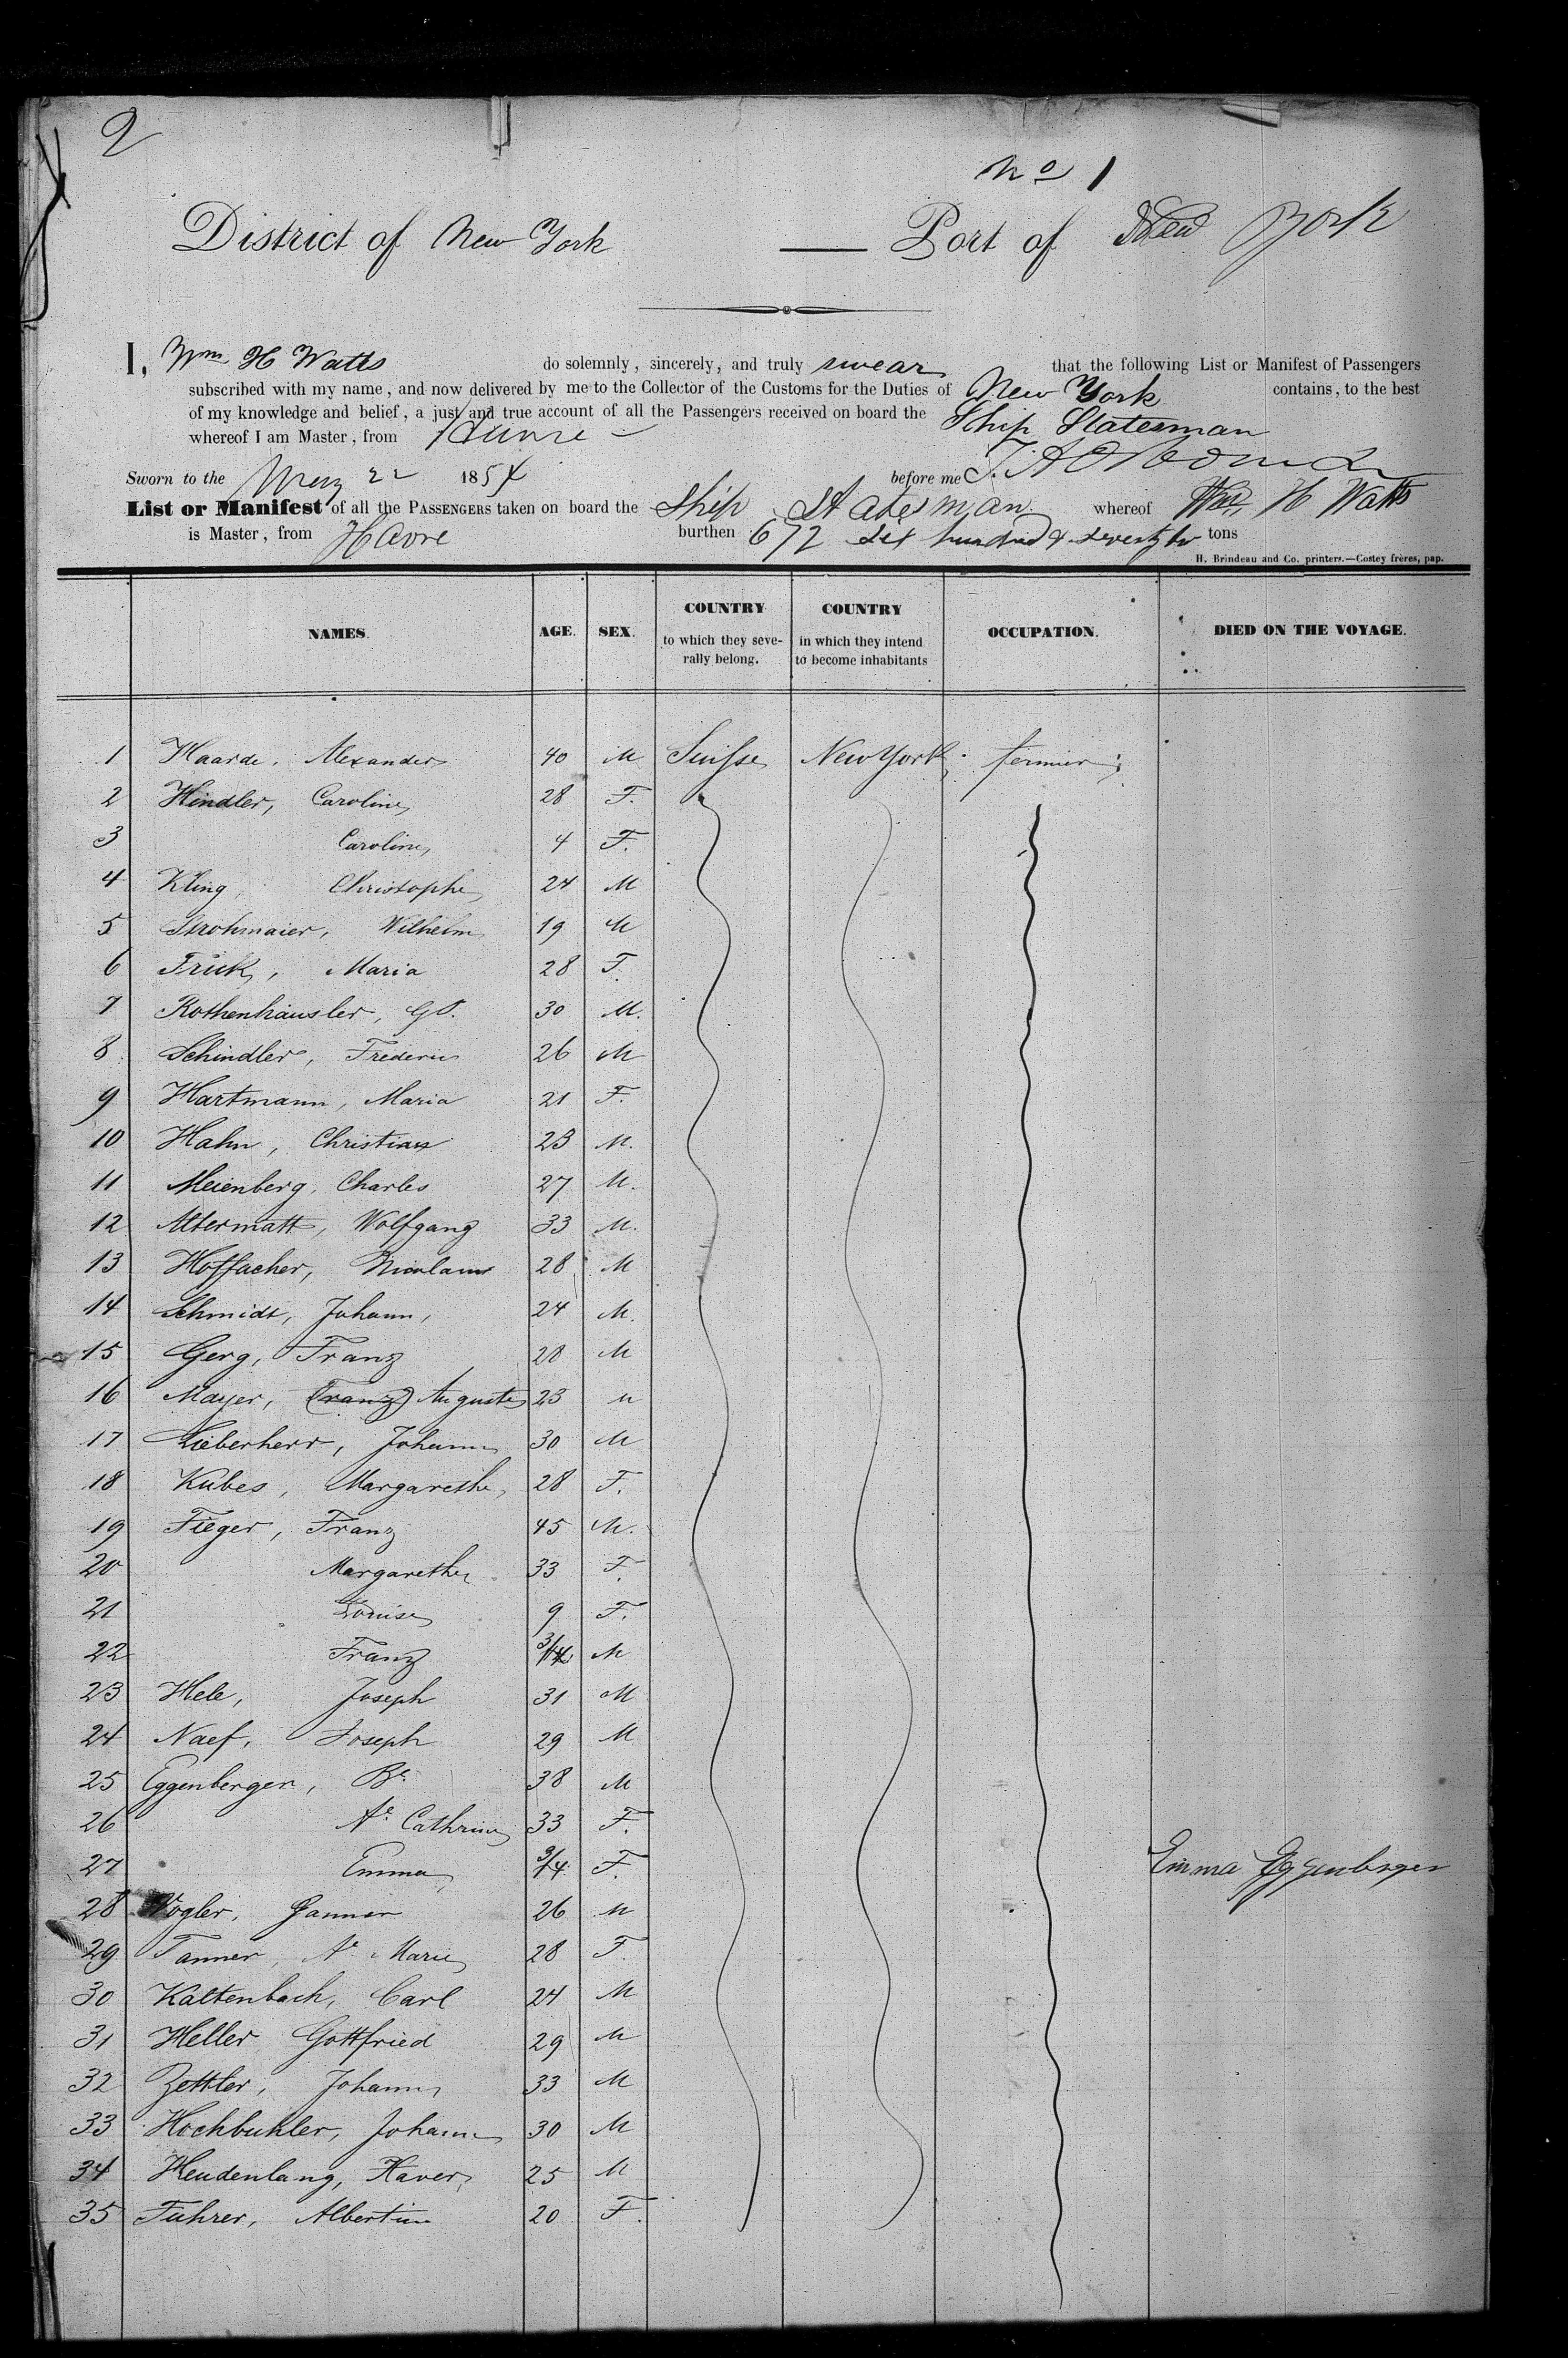 2
No 1
District of New York — Port of New York
I, Wm H Watts do solemnly, sincerely, and truly swear that the following List or Manifest of Passengers
subscribed with my name, and now delivered by me to the Collector of the Customs for the Duties of New York contains, to the best
of my knowledge and belief, a just and true account of all the Passengers received on board the Ship Statesman
whereof I am Master, from Havre
Sworn to the 22 1854 before me
List or Manifest of all the PASSENGERS taken on board the Ship Statesman whereof Wm H Watts
is Master, from Havre burthen 672 Six hundred & seventy two tons
H. Brindeau and Co. printers.—Costey frères, pap.
NAMES. AGE. SEX. COUNTRY to which they seve-rally belong. COUNTRY in which they intend to become inhabitants OCCUPATION. DIED ON THE VOYAGE.
1 Haarde, Alexander 40 M Suisse New York fermier
2 Hindler, Caroline 28 F.
3 Caroline, 4 F.
4 Kling, Christophe 24 M
5 Strohmaier, Wilhelm 19 M
6 Frick, Maria 28 F.
7 Rothenhäusler, Gd. 30 M.
8 Schindler, Frederic 26 M
9 Hartmann, Maria 21 F.
10 Hahn, Christian 23 M.
11 Meienberg, Charles 27 M.
12 Altermatt, Wolfgang 33 M.
13 Hoffacher, Nicolaus 28 M
14 Schmidt, Johann, 24 M.
15 Gerg, Franz 28 M
16 Mayer, (Franz) Auguste 23 M
17 Lieberherr, Johann 30 M
18 Kubes, Margarethe, 28 F.
19 Fieger, Franz 45 M.
20 Margarethe 33 F.
21 Louise 9 F.
22 Franz 3/4 M
23 Hele, Joseph 31 M
24 Naef, Joseph 29 M
25 Eggenberger, Be. 38 M
26 Ae. Cathrine 33 F.
27 Emma 3/4 F. Emma Eggenberger
28 Vogler, 26 M
29 Tanner, Ae Marie 28 F
30 Kaltenbach, Carl 24 M
31 Heller Gottfried 29 M
32 Zettler, Johann 33 M
33 Hochbuhler, Johann 30 M
34 Heudenlang, Xaver, 25 M
35 Fuhrer, Albertine 20 F.